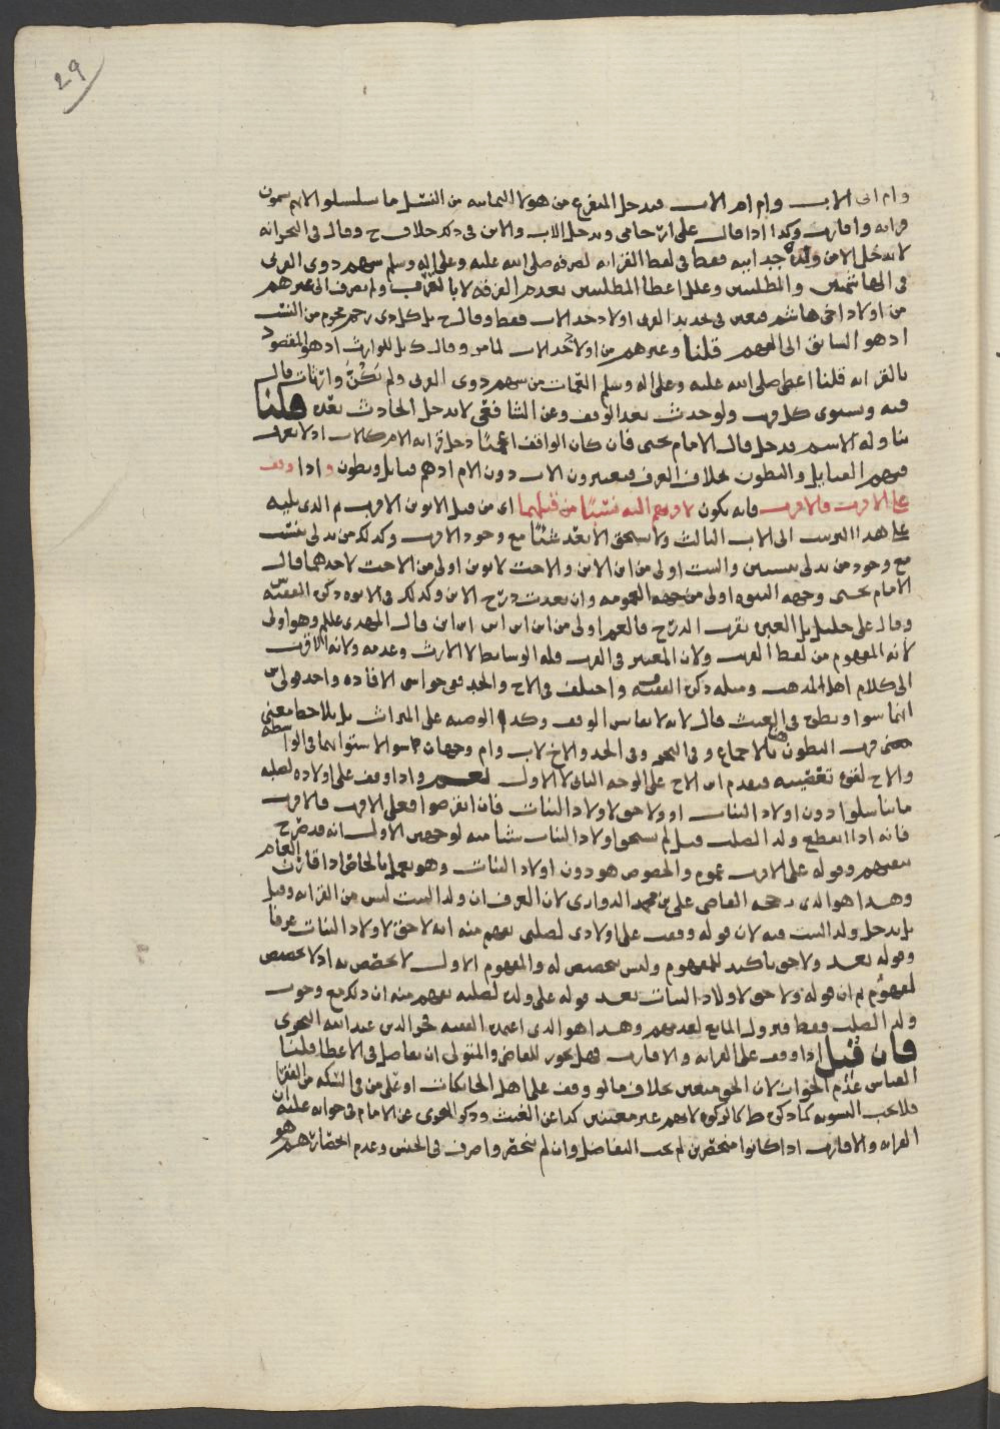 29
وام ابى الاب وام ام الاب فيدخل المتفرع من هولا الثمانيه من النسل ما تناسلوا لانهم يسمون
قرابه واقارب وكذا اذا قال على ارحامى ويدخل الاب والابن فى ذلك خلاف ح وقال فى البحر انه
لا يدخل الابن وولده جد ابيه فقط فى لفظ القرابه لصرفه صلى الله عليه وعلى اله وسلم سهم ذوى القربى
فى الهاشميين والمطلبيين وعلل اعطا المطلبيين بعدم الفرقه لا بالقرب ولم يصرف الى غيرهم
من اولاد اخى هاشم فتعين فى تحديد القربى اولاد جد الاب فقط وقال ح بل كل ذى رحم محرم من النسب
اذ هو السابق الى الفهم قلنا وغيرهم من اولاد جد الاب لما مر وقال ك بل للوارث اذ هو المقصود
بالقرابه قلنا اعطى صلى الله عليه وعلى اله وسلم العمات من سهم ذوى القربى ولم يكنّ وارثات قال
فيه ويستوى كل قريب ولو حدث بعد الوقف وعن الشافعى لا يدخل الحادث بعده قلنا
تناوله الاسم فدخل قال الامام يحيى فان كان الواقف اعجميًا دخل قرابه الام كالاب اذ لا تعرف
فيهم القبايل والبطون بخلاف العرف فيعتبرون الاب دون الام اذ هم قبايل وبطون واذا وقف
على الاقرب فالاقرب فانه يكون لاقربهم اليه نسبًا من قبلهما اى من قبل الابوين الاقرب ثم الذى يليه
على هذا الترتيب الى الاب الثالث ولا يستحق الابعد شيًا مع وجود الاقرب وكذلك من يدلى بنسب
مع وجود من يدلى بنسبين والبنت اولى من ابن الابن والاخت لابوين اولى من الاخت لاحدهما قال
الامام يحيى وجهه البنوه اولى من جهه العمومه وان بعدت درج الابن وكذلك فى الابوه ذكره الفقيه س
وقال على خليل بل العبره بقرب الدرج فالعم اولى من ابن ابن ابن ابن ابن قال المهدى عليلم وهو اولى
لانه المفهوم من لفظ القرب ولان المعتبر فى القرب قله الوسايط لا الارث وعدمه ولانه الاقرب
الى كلام اهل المذهب ومثله ذكره الفقيه واختلف فى الاخ والجد ففى حواشى الافاده واحد قولى س
انهما سوا ونظره فى الغيث قال لانه لا يقاس الوقف وكذا الوصيه على الميراث بل يلاحظ معنى
قرب البطون بالاجماع وفى البحر وفى الجد والاخ لاب وام وجهان سوا لاستوايهما فى الواسطه
والاخ لقوه تعصيبه فيقدم ابن الاخ على الوجه الثانى لا الاول نعم واذا وقف على اولاده لصلبه
ما تناسلوا دون اولاد البنات او ولا حق لاولاد البنات فان انقرضوا فعلى الاقرب فالاقرب
فانه اذا انقطع ولد الصلب قيل لم يستحق اولاد البنات شيا منه لوجهين الاول انه قد صرح
بنفيهم وقوله على الاقرب عموم والخصوص هو دون اولاد البنات وهو يعمل بالخاص اذا قارن العام
وهذا هو الذى رجحه القاضى على بن محمد الدوارى لان العرف ان ولد البنت ليس من القرابه وقيل
بل يدخل ولد البنت فيه لان قوله وقفت على اولادى لصلبى يفهم منه انه لا حق لاولاد البنات عرفا
وقوله بعد ولا حق تاكيد للمفهوم وليس بتخصيص له والمفهوم الاول لا يخصص به اذ لا تخصيص
لمفهوم ثم ان قوله ولا حق لاولاد البنات بعد قوله على ولده لصلبه يفهم منه ان ذلك مع وجود
ولد الصلب فقط فيزول المانع لفقدهم وهذا هو الذى اعتمده الفقيه فخر الدين عبد الله النحوى
فان قيل اذا وقف على القرابه والاقارب فهل يجوز للقاضى والمتولى ان يفاضل فى الاعطا قلنا
القياس عدم الجواز لان الحق متعين بخلاف ما لو وقف على اهل الخانكات او على من فى السكه من الفقرا
فلا تجب التسويه كما ذكره ط كالزكوه لانهم غير معينين كذا عن الغيث وذكر النحوى عن الامام فى جوابه عليه ان
القرابه والاقارب اذا كانوا منحصرين لم يجب التفاضل وان لم ينحصروا صرف فى الجنس وعدم انحصارهم هو